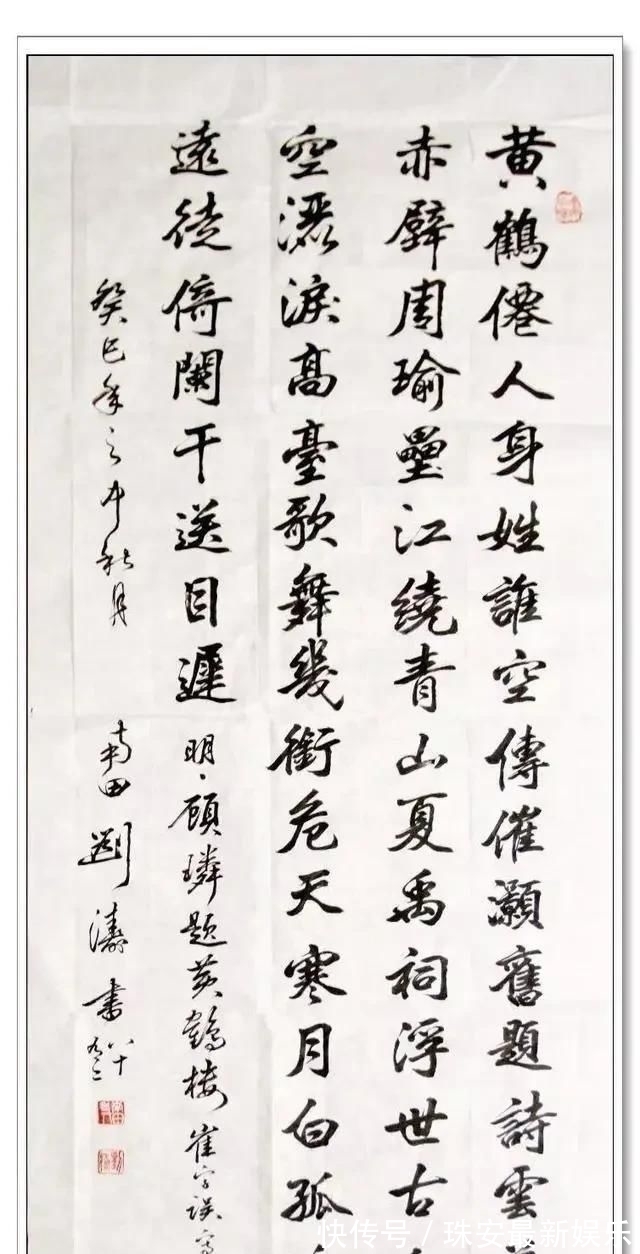 黄鶴僊人身姓誰空傳催灝舊題詩雲
赤壁周瑜壘江繞青山夏禹祠浮世古
空灑淚高臺歌舞幾銜危天寒月白孤
遠徒倚闌干送目遲 明、顧璘題黄鶴楼 崔字误寫
癸巳年之中秋月 南田劉濤書 八十
快传号 / 珠安最新娱乐